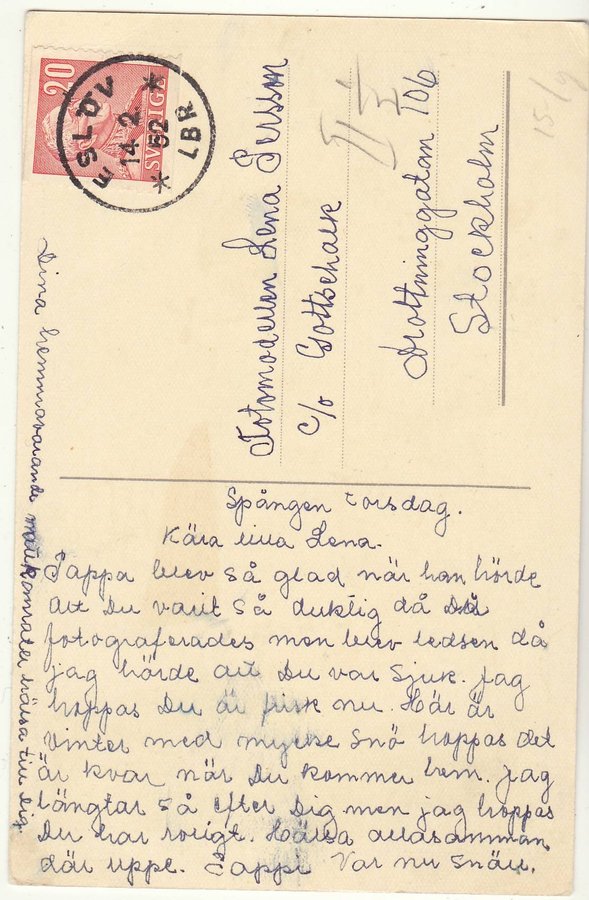 20
SVERIGE
ESLÖV
14.2.
52
LBR
15-/9
Fotomodellen Lena Persson
c/o Gottschalk
Drottninggatan 106
Stockholm
Spången torsdag.
Kära lilla Lena.
Pappa blev så glad när han hörde
att Du varit så duktig då Du
fotograferades men blev ledsen då
jag hörde att Du var sjuk. Jag
hoppas Du är frisk nu. Här är
vinter med mycke snö hoppas det
är kvar när Du kommer hem. Jag
längtar så efter Dig men jag hoppas
Du har roligt. Hälsa allasamman
där uppe. Pappi Var nu snäll.
Dina hemmavarande matkamrater hälsa till Dig